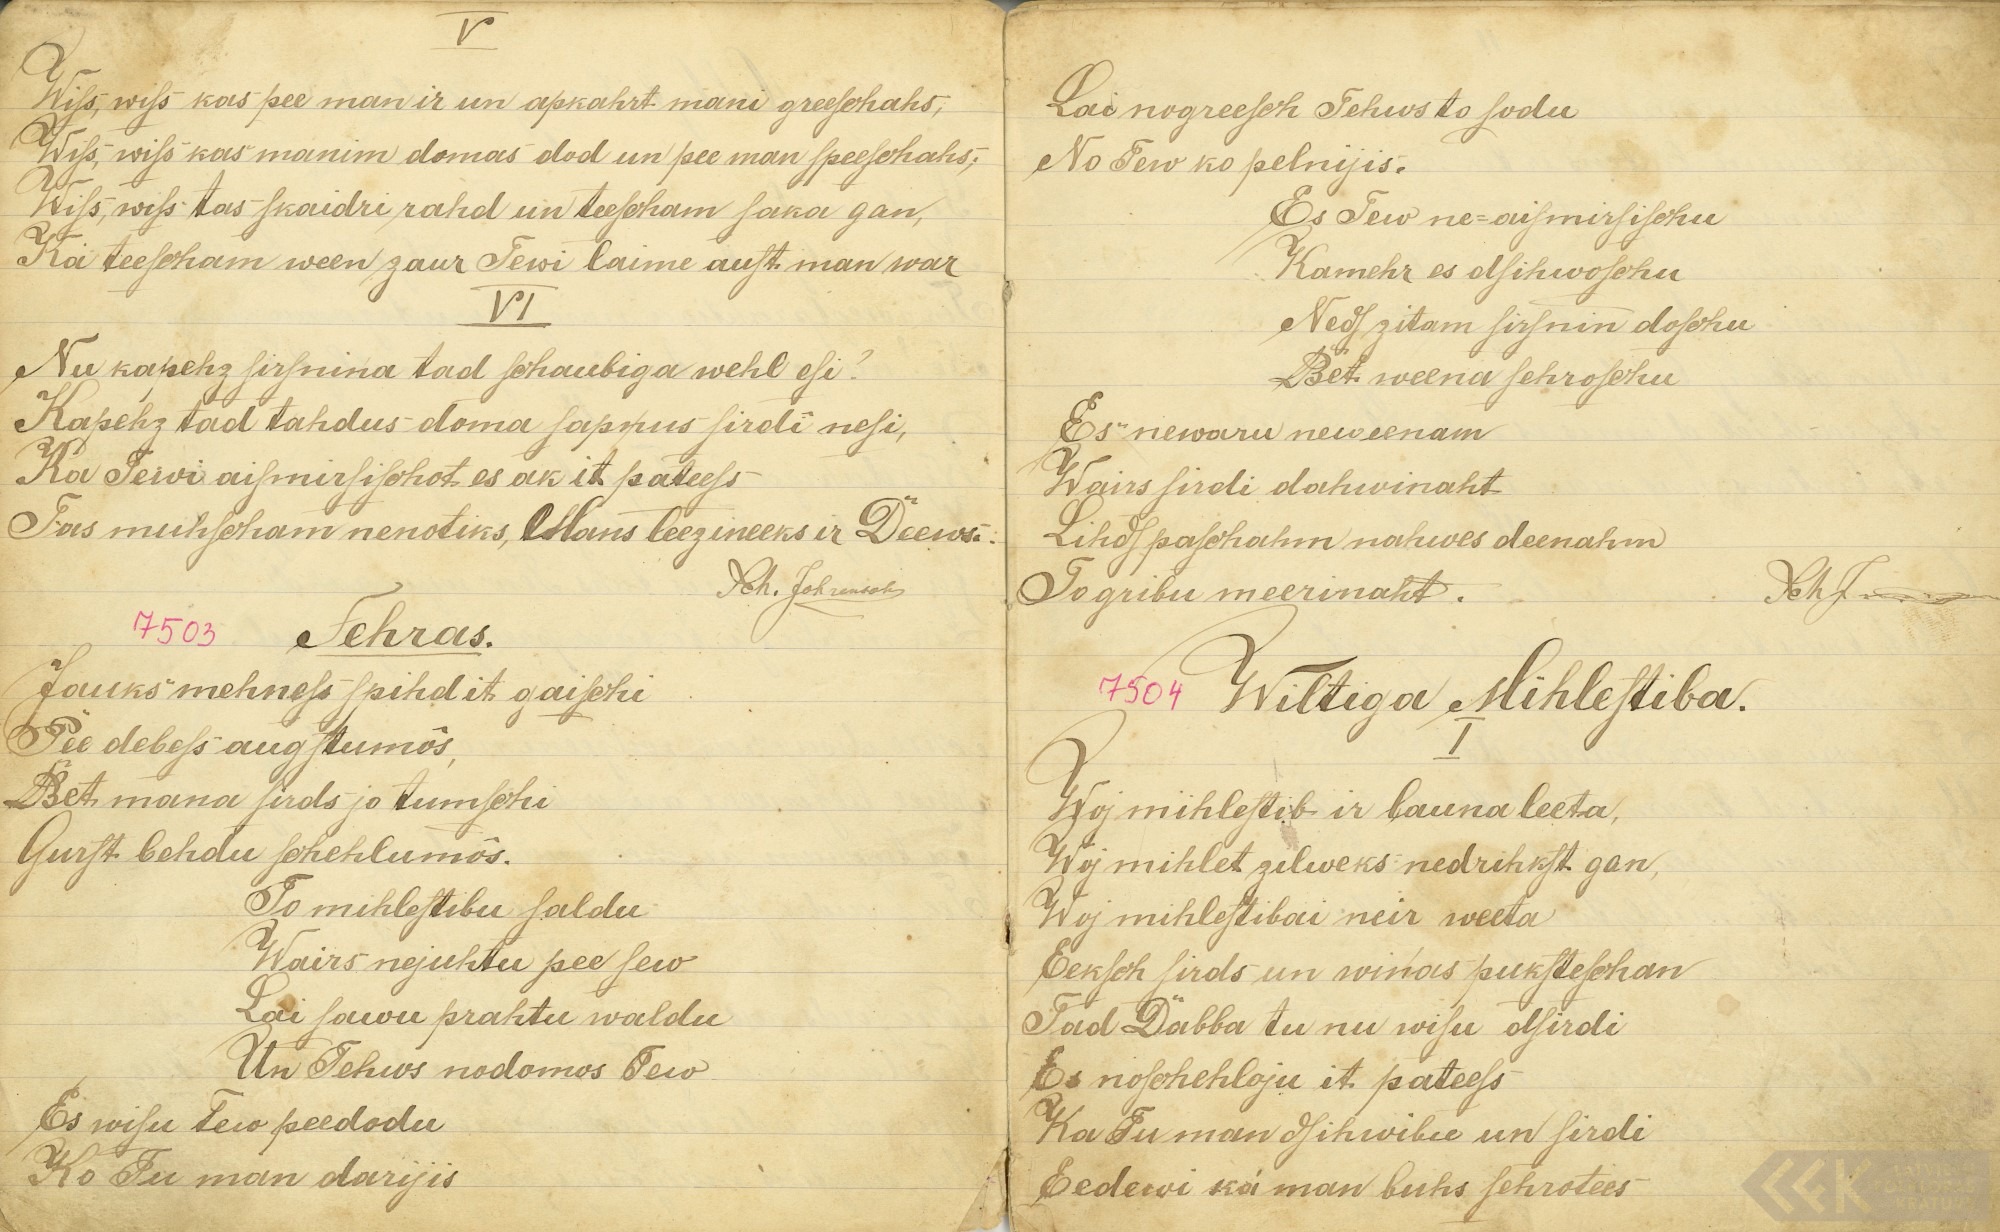 V
Wiss, wiss kas pee man ir un apkahrt mani greeschahs,
Wiss, wiss kas manim domas dod un pee man speeschahs,
Wiss, wiss tas skaidri rahd un teescham saka gan,
Ka teescham ween zaur Tewi laime aust man war
VI
Nu kapehz sirsnina tad schaubiga wehl esi?
Kapehz tad tahdus doma sappus sirdi nesi,
Ka Tewi aismirsischot es ak it pateess
Tas muhscham nenotiks, Mans leezineeks ir Deews.
7503 Tehras.
Jauks mehness spihd it gaischi
Pee debess augstumôs,
Bet mana sirds jo tumschi
Gurst behdu schehlumôs.
To mihlestibu saldu
Wairs nejuhtu pee sew
Lai sawu prahtu waldu
Un Tehws nodomos Tew
Es wisu Tew peedodu
Ko Tu man darijis
Lai nogreesch Tehws to sodu
No Tew ko pelnijis.
Es Tew ne=aismirsischu
Kamehr es dsihwoschu
Neds zitam sirsnin doschu
Bet weena sehroschu
Es newaru neweenam
Wairs sirdi dahwinaht
Lihds paschahm nahwes deenahm
To gribu meerinaht.
7504 Wiltiga Mihlestiba.
I
Woj mihlestib ir launa leeta,
Woj mihlet zilweks nedrihkst gan,
Woj mihlestibai neir weeta
Eeksch sirds un winas puksteschan
Tad Dabba tu nu wisu dsirdi
Es noschehloju it pateess
Ka Tu man dsihwibu un sirdi
Eedewi ká man buhs sehrotees